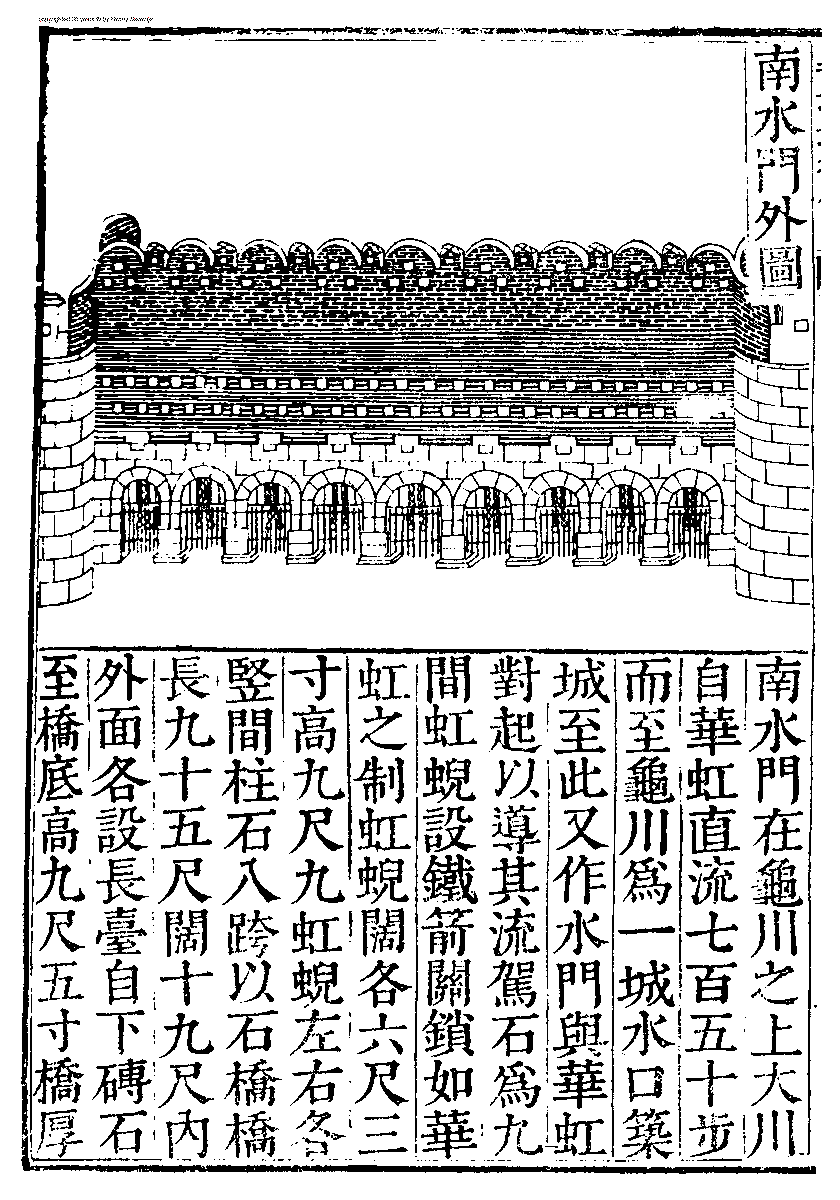 南水門外圖
南水門在龜川之上大川
自華虹直流七百五十步
而至龜川爲一城水口築
城至此又作水門與華虹
對起以導其流駕石爲九
間虹蜺設鐵箭關鎖如華
虹之制虹蜺闊各六尺三
寸高九尺九虹蜺左右各
竪間柱石八跨以石橋橋
長九十五尺闊十九尺內
外面各設長臺自下磚石
至橋底高九尺五寸橋厚